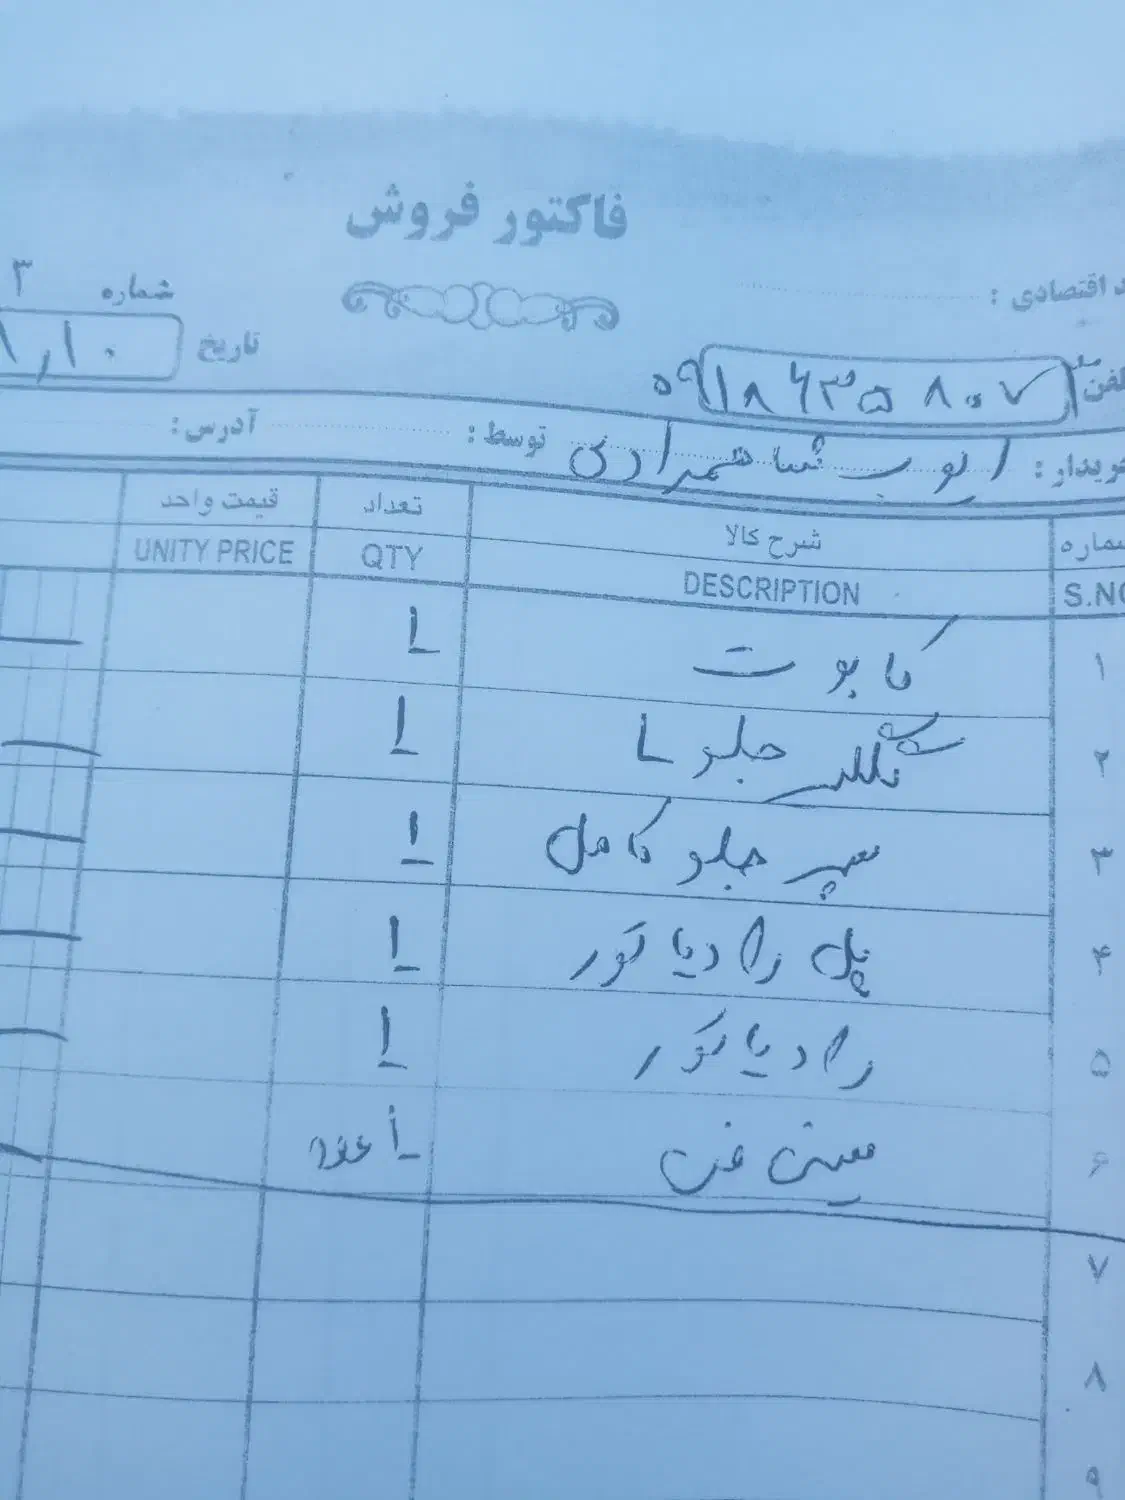 فاکتور فروش
د اقتصادی :
شماره ۳
تاریخ ۱٫۱۰
تلفن ۰۹۱۸۶۳۵۸۰۷
خریدار : ایوب شاهمرادی توسط : آدرس :
شماره شرح کالا تعداد قیمت واحد
S.NO DESCRIPTION QTY UNITY PRICE
۱ کاپوت ۱
۲ جلو ۱
۳ سپر جلو کامل ۱
۴ پل رادیاتور ۱
۵ رادیاتور ۱
۶ سینی فن ۱ عدد
۷
۸
۹